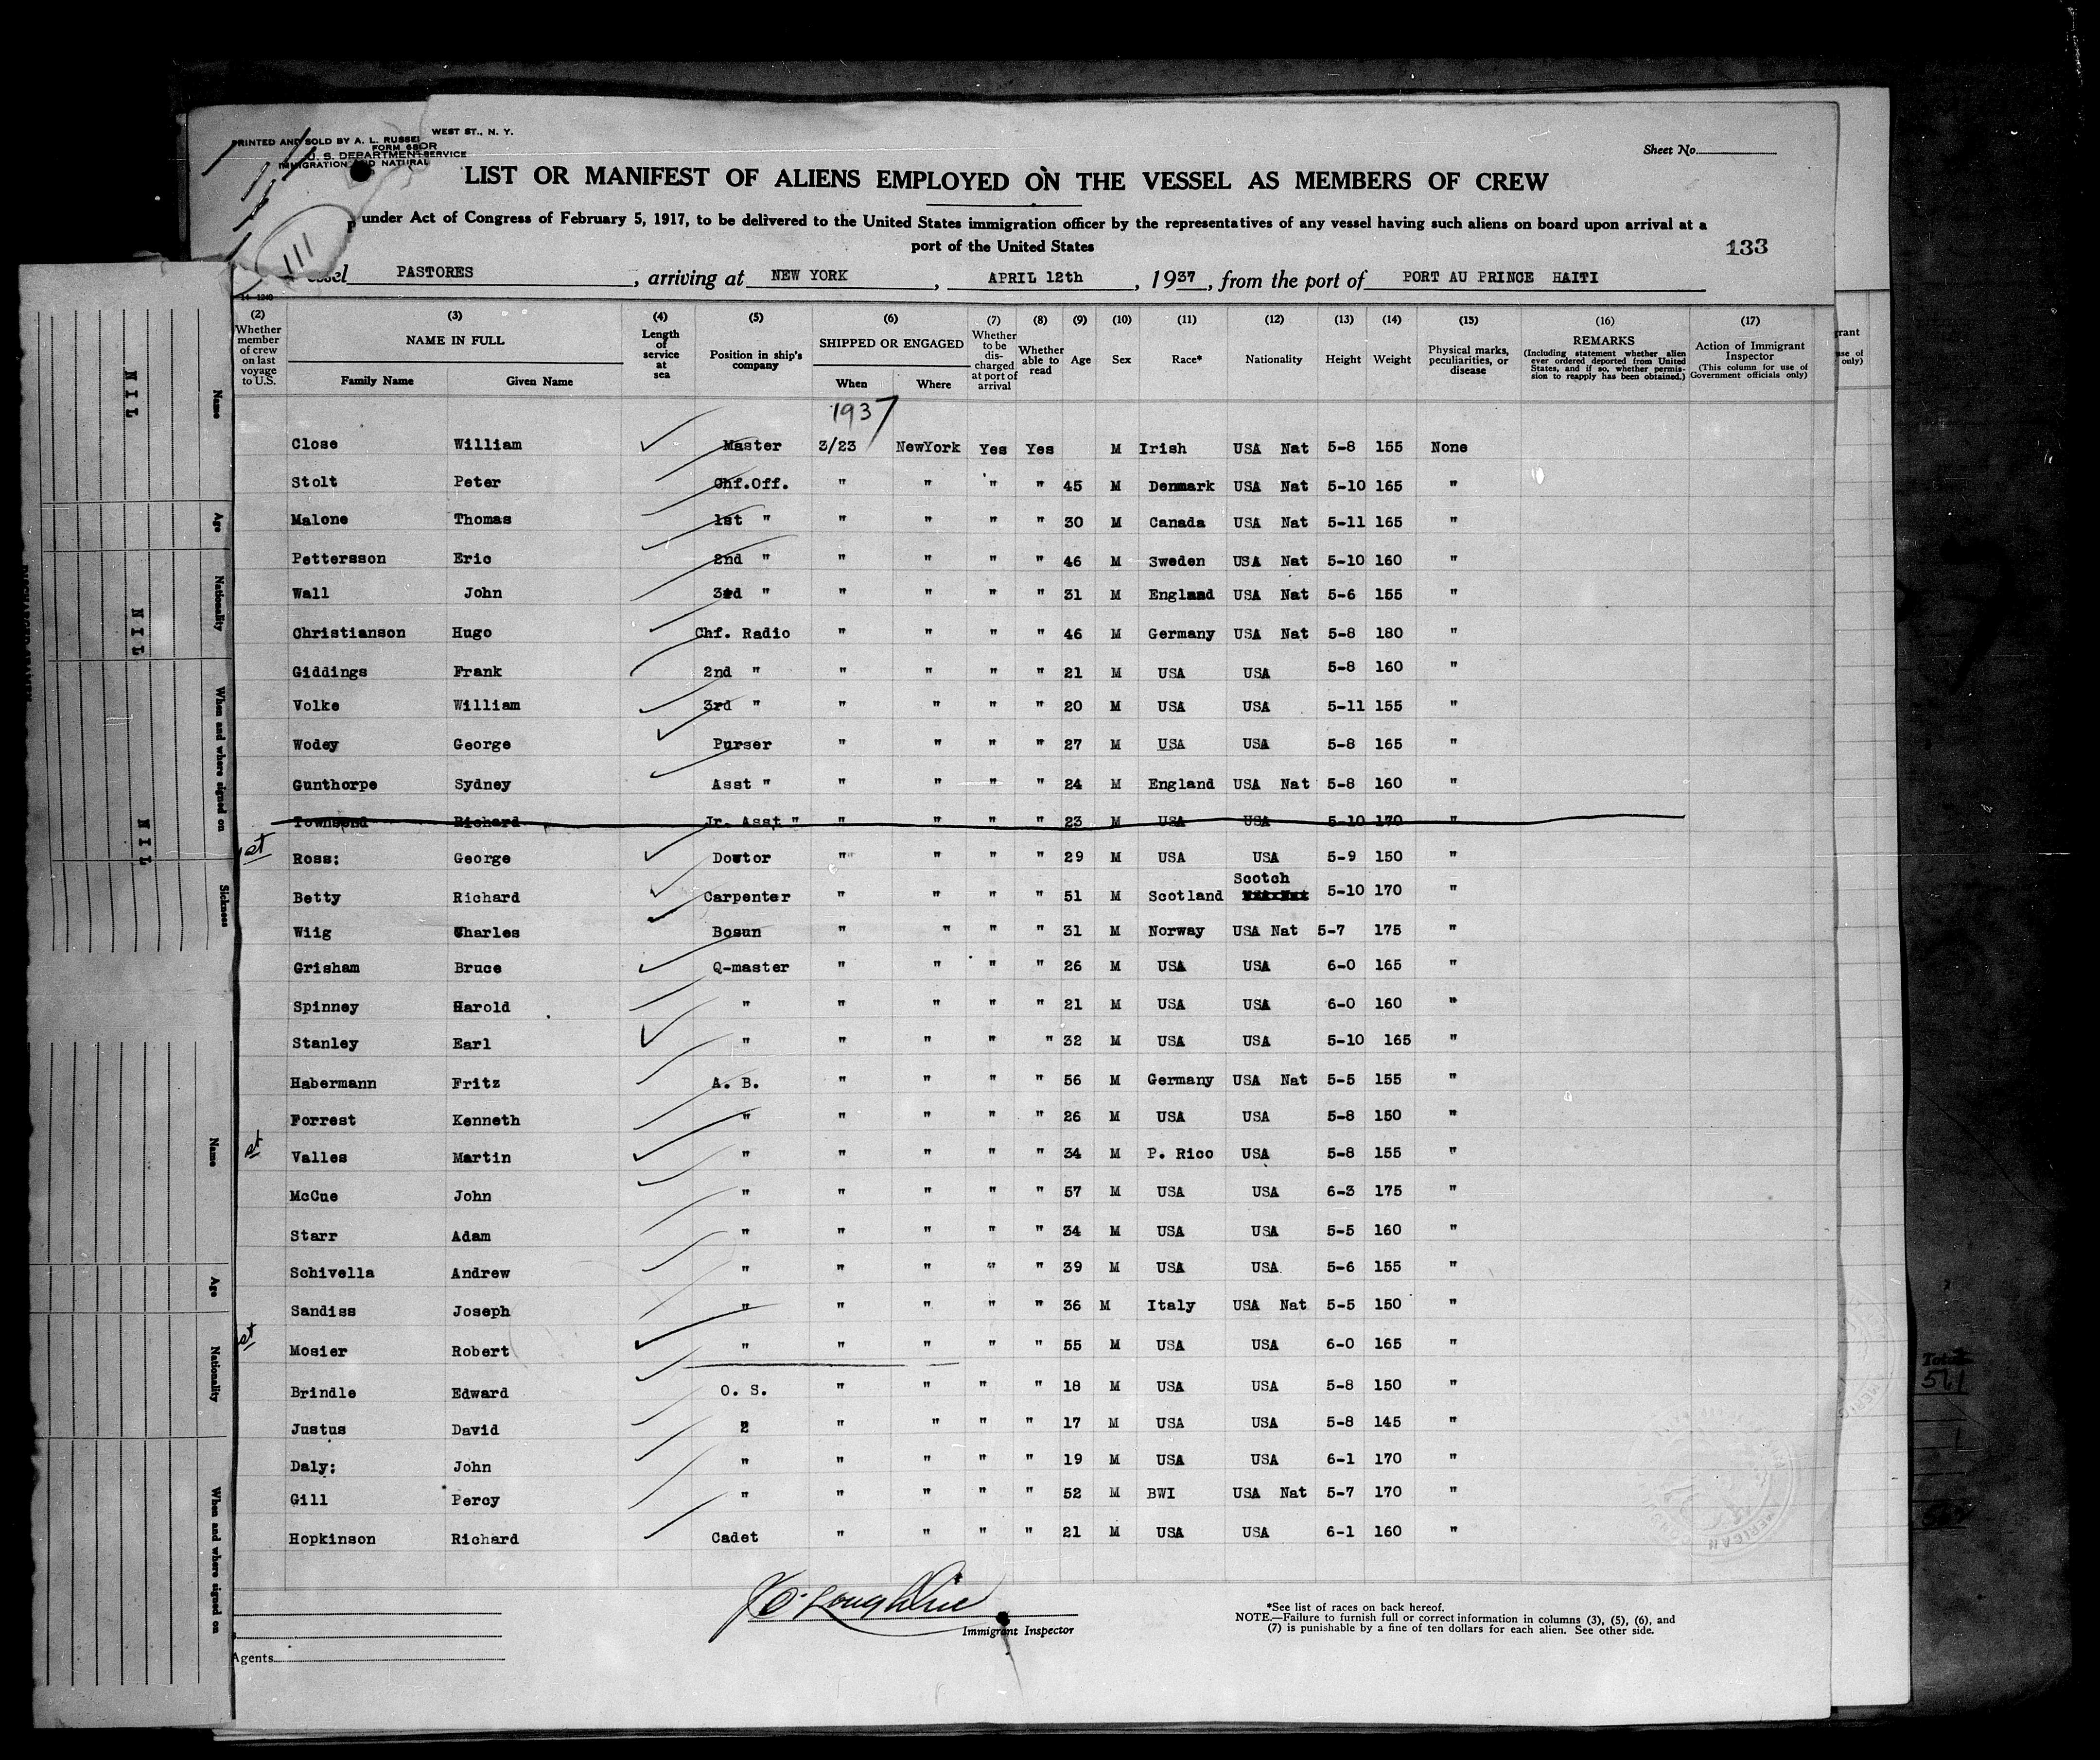 WEST ST., N. Y.
PRINTED AND SOLD BY A. L. RUSSE
FORM 680
U. S. DEPARTMENT OR
IMMIGRATION AND NATURAL SERVICE
Sheet No.
LIST OR MANIFEST OF ALIENS EMPLOYED ON THE VESSEL AS MEMBERS OF CREW
under Act of Congress of February 5, 1917, to be delivered to the United States immigration officer by the representatives of any vessel having such aliens on board upon arrival at a
port of the United States
133
111
ssel PASTORES, arriving at NEW YORK, APRIL 12th, 1937, from the port of PORT AU PRINCE HAITI
(2) Whether member of crew on last voyage to U.S. (3) NAME IN FULL Family Name Given Name (4) Length of service at sea (5) Position in ship's company (6) SHIPPED OR ENGAGED When Where (7) Whether to be discharged at port of arrival (8) Whether able to read (9) Age (10) Sex (11) Race* (12) Nationality (13) Height (14) Weight (15) Physical marks, peculiarities, or disease (16) REMARKS (Including statement whether alien ever ordered deported from United States, and if so, whether permission to reapply has been obtained.) (17) Action of Immigrant Inspector (This column for use of Government officials only)
1937
Close William Master 3/23 NewYork Yes Yes M Irish USA Nat 5-8 155 None
Stolt Peter Chf.Off. " " " " 45 M Denmark USA Nat 5-10 165 "
Malone Thomas 1st " " " " " 30 M Canada USA Nat 5-11 165 "
Pettersson Eric 2nd " " " " " 46 M Sweden USA Nat 5-10 160 "
Wall John 3rd " " " " " 31 M England USA Nat 5-6 155 "
Christianson Hugo Chf. Radio " " " " 46 M Germany USA Nat 5-8 180 "
Giddings Frank 2nd " " " " " 21 M USA USA 5-8 160 "
Volke William 3rd " " " " " 20 M USA USA 5-11 155 "
Wodey George Purser " " " " 27 M USA USA 5-8 165 "
Gunthorpe Sydney Asst " " " " " 24 M England USA Nat 5-8 160 "
Townsend Richard Jr. Asst " " " " " 23 M USA USA 5-10 170 "
Ross; George Doctor " " " " 29 M USA USA 5-9 150 "
Betty Richard Carpenter " " " " 51 M Scotland Scotch 5-10 170 "
Wiig Charles Bosun " " " " 31 M Norway USA Nat 5-7 175 "
Grisham Bruce Q-master " " " " 26 M USA USA 6-0 165 "
Spinney Harold " " " " " 21 M USA USA 6-0 160 "
Stanley Earl " " " " " 32 M USA USA 5-10 165 "
Habermann Fritz A. B. " " " " 56 M Germany USA Nat 5-5 155 "
Forrest Kenneth " " " " " 26 M USA USA 5-8 150 "
Valles Martin " " " " " 34 M P. Rico USA 5-8 155 "
McCue John " " " " " 57 M USA USA 6-3 175 "
Starr Adam " " " " " 34 M USA USA 5-5 160 "
Schivella Andrew " " " " " 39 M USA USA 5-6 155 "
Sandiss Joseph " " " " " 36 M Italy USA Nat 5-5 150 "
Mosier Robert " " " " " 55 M USA USA 6-0 165 "
Brindle Edward O. S. " " " " 18 M USA USA 5-8 150 "
Justus David 2 " " " " 17 M USA USA 5-8 145 "
Daly; John " " " " " 19 M USA USA 6-1 170 "
Gill Percy " " " " " 52 M BWI USA Nat 5-7 170 "
Hopkinson Richard Cadet " " " " 21 M USA USA 6-1 160 "
Immigrant Inspector
*See list of races on back hereof.
NOTE.—Failure to furnish full or correct information in columns (3), (5), (6), and
(7) is punishable by a fine of ten dollars for each alien. See other side.
Agents
Name Age Nationality When and where signed on Sickness
NIL NIL NIL
Name Age Nationality When and where signed on